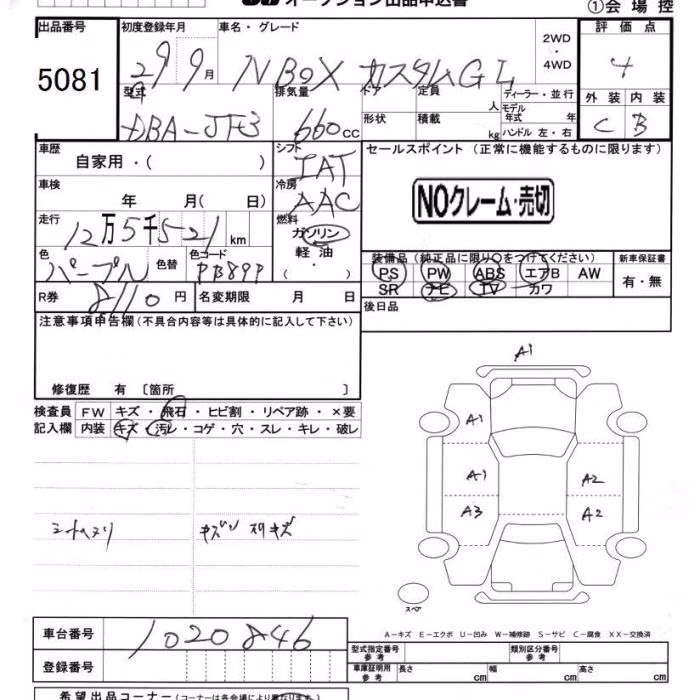 オークション出品申込書
①会場控
出品番号 初度登録年月 車名・グレード 2WD・4WD 評価点
5081 29 9月 N BOX カスタムGL 4
型式 排気量 ドア 定員 人 ディーラー・並行 外装 内装
DBA-JF3 660cc 形状 積載 kg モデル年式 年 ハンドル 左・右 C B
車歴 自家用・( ) シフト IAT セールスポイント (正常に機能するものに限ります)
車検 年 月( 日) 冷房 AAC NOクレーム・売切
走行 12万5千521km 燃料 ガソリン
色 パープル 色替 色コード PB89P 軽油 ( ・ )
装備品(純正品に限り○をつけてください) 新車保証書
PS PW ABS エアB AW 有・無
SR ナビ TV カワ
R券 8110円 名変期限 月 日 後日品
注意事項申告欄(不具合内容等は具体的に記入して下さい)
修復歴 有 〔箇所 〕
検査員 FW キズ・飛石・ヒビ割・リペア跡・×要
記入欄 内装 キズ・汚レ・コゲ・穴・スレ・キレ・破レ
A1
A1
A1 A2
A3 A2
キズ
スペア
A－キズ E－エクボ U－凹み W－補修跡 S－サビ C－腐食 XX－交換済
車台番号 1020846
型式指定番号 参考 類別区分番号 参考
登録番号 車庫証明用 参考 長さ cm 幅 cm 高さ cm
希望出品コーナー